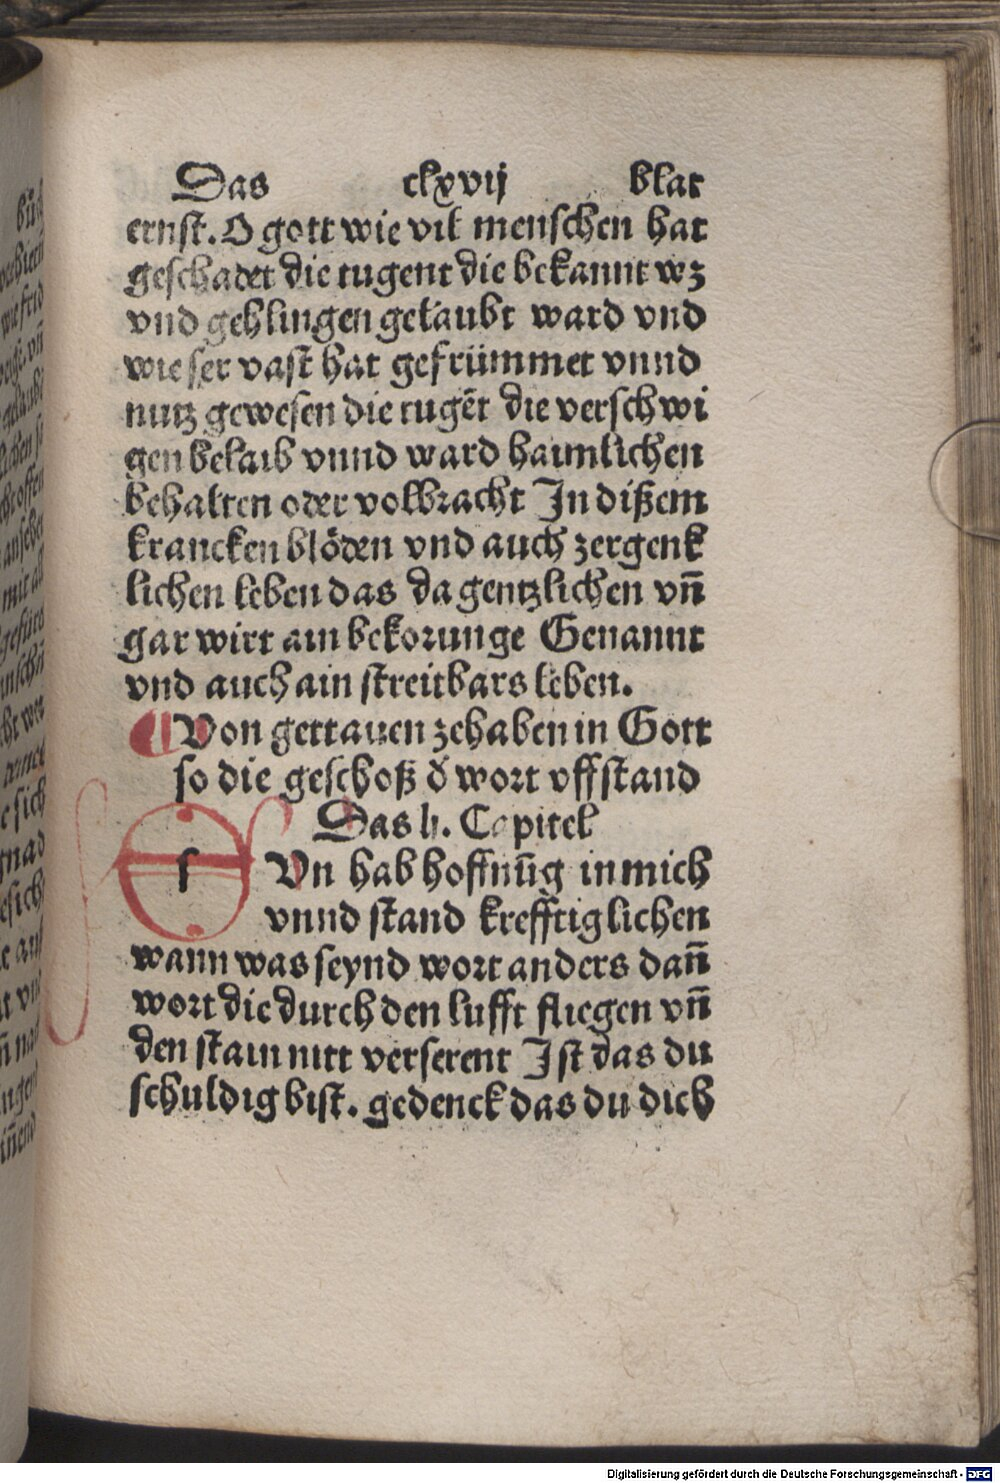 Das clxvij blat
ernst. O gott wie vil menschen hat
geschadet die tugent die bekannt wz
vnd gehlingen gelaubt ward vnd
wie ser vast hat gefrümmet vnnd
nutz gewesen die tugēt die verschwi
gen belaib vnnd ward haimlichen
behalten oder volbracht In dißem
krancken blöden vnd auch zergenk
lichen leben das da gentzlichen vn̄
gar wirt ain bekorunge Genannt
vnd auch ain streitbars leben.
¶ Von gettauen zehaben in Gott
so die geschoß d̕ wort vffstand
Das li. Capitel
s Vn hab hoffnūg in mich
vnnd stand krefftiglichen
wann was seynd wort anders dan̄
wort die durch den lufft fliegen vn̄
den stain nitt verserent Ist das du
schuldig bist. gedenck das du dich
Digitalisierung gefördert durch die Deutsche Forschungsgemeinschaft - DFG